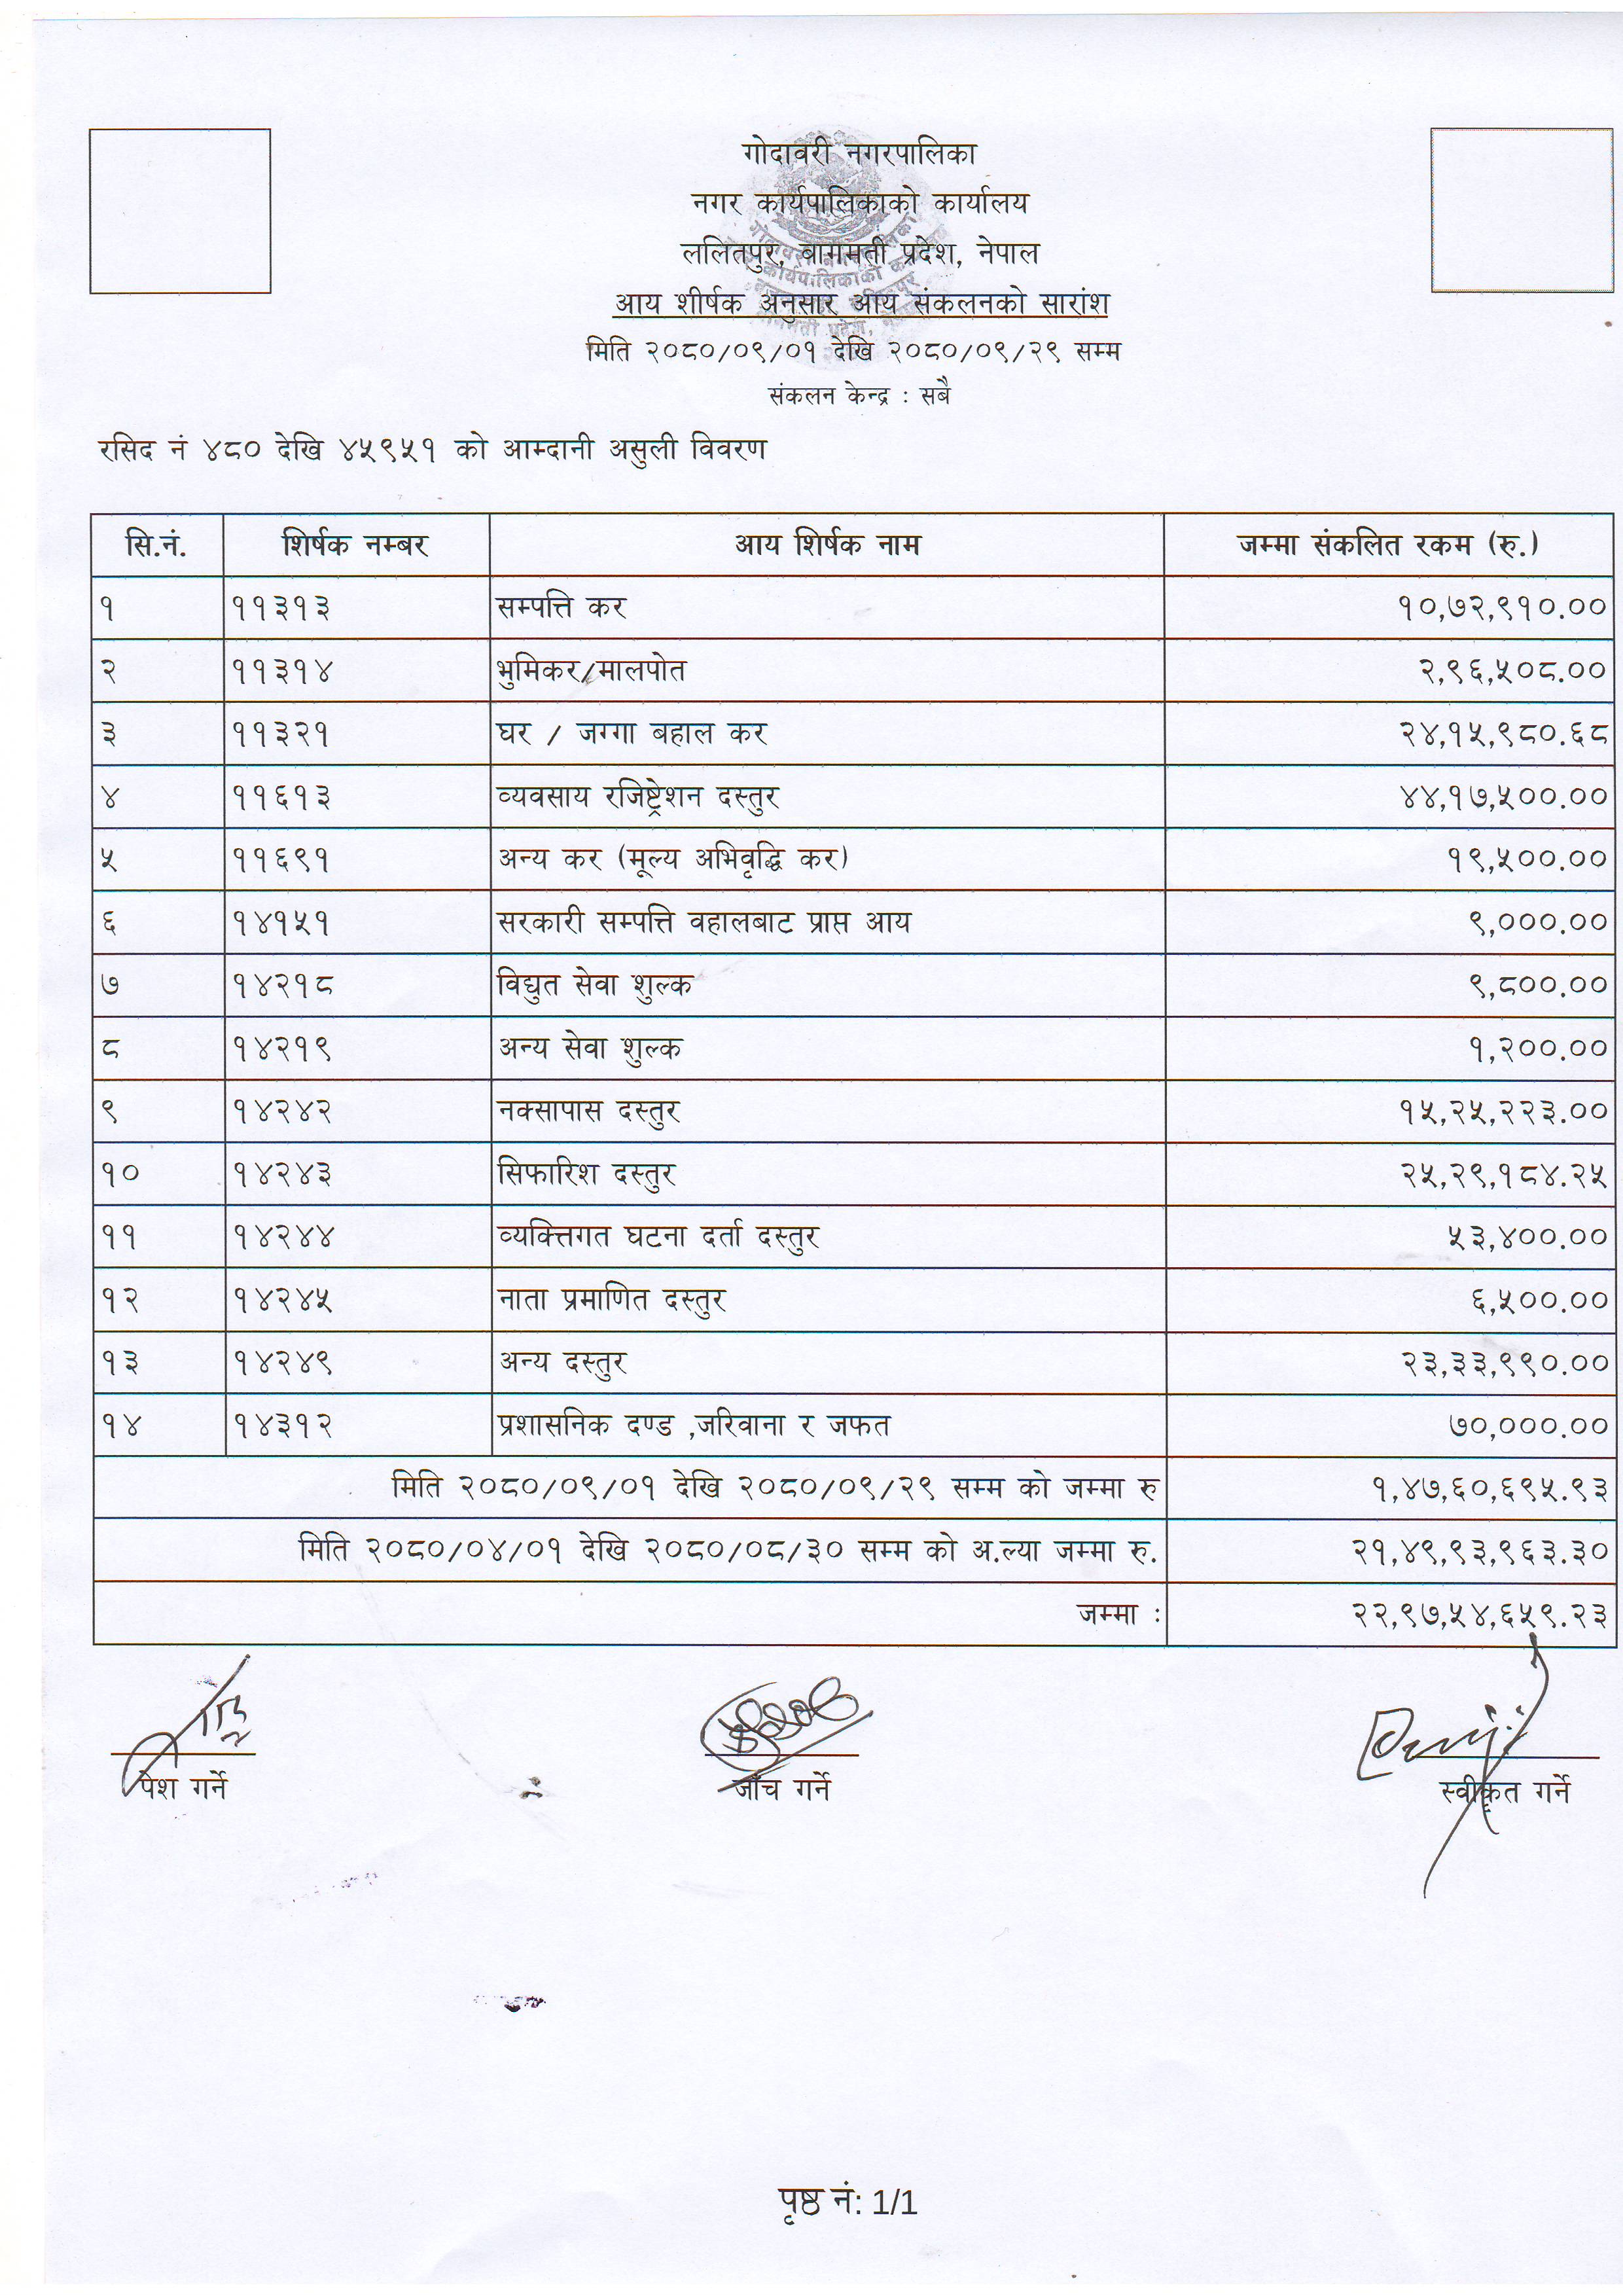 गोदावरी नगरपालिका
नगर कार्यपालिकाको कार्यालय
ललितपुर, बागमती प्रदेश, नेपाल
आय शीर्षक अनुसार आय संकलनको सारांश
मिति २०८०/०९/०१ देखि २०८०/०९/२९ सम्म
संकलन केन्द्र : सबै
रसिद नं ४८० देखि ४५९५१ को आम्दानी असुली विवरण
सि.नं. शिर्षक नम्बर आय शिर्षक नाम जम्मा संकलित रकम (रु.)
१ ११३१३ सम्पत्ति कर १०,७२,९१०.००
२ ११३१४ भुमिकर/मालपोत २,९६,५०८.००
३ ११३२१ घर / जग्गा बहाल कर २४,१५,९८०.६८
४ ११६१३ व्यवसाय रजिष्ट्रेशन दस्तुर ४४,१७,५००.००
५ ११६९१ अन्य कर (मूल्य अभिवृद्धि कर) १९,५००.००
६ १४१५१ सरकारी सम्पत्ति वहालबाट प्राप्त आय ९,०००.००
७ १४२१८ विद्युत सेवा शुल्क ९,८००.००
८ १४२१९ अन्य सेवा शुल्क १,२००.००
९ १४२४२ नक्सापास दस्तुर १५,२५,२२३.००
१० १४२४३ सिफारिश दस्तुर २५,२९,१८४.२५
११ १४२४४ व्यक्तिगत घटना दर्ता दस्तुर ५३,४००.००
१२ १४२४५ नाता प्रमाणित दस्तुर ६,५००.००
१३ १४२४९ अन्य दस्तुर २३,३३,९९०.००
१४ १४३१२ प्रशासनिक दण्ड ,जरिवाना र जफत ७०,०००.००
मिति २०८०/०९/०१ देखि २०८०/०९/२९ सम्म को जम्मा रु १,४७,६०,६९५.९३
मिति २०८०/०४/०१ देखि २०८०/०८/३० सम्म को अ.ल्या जम्मा रु. २१,४९,९३,९६३.३०
जम्मा : २२,९७,५४,६५९.२३
पेश गर्ने जाँच गर्ने स्वीकृत गर्ने
पृष्ठ नं: 1/1